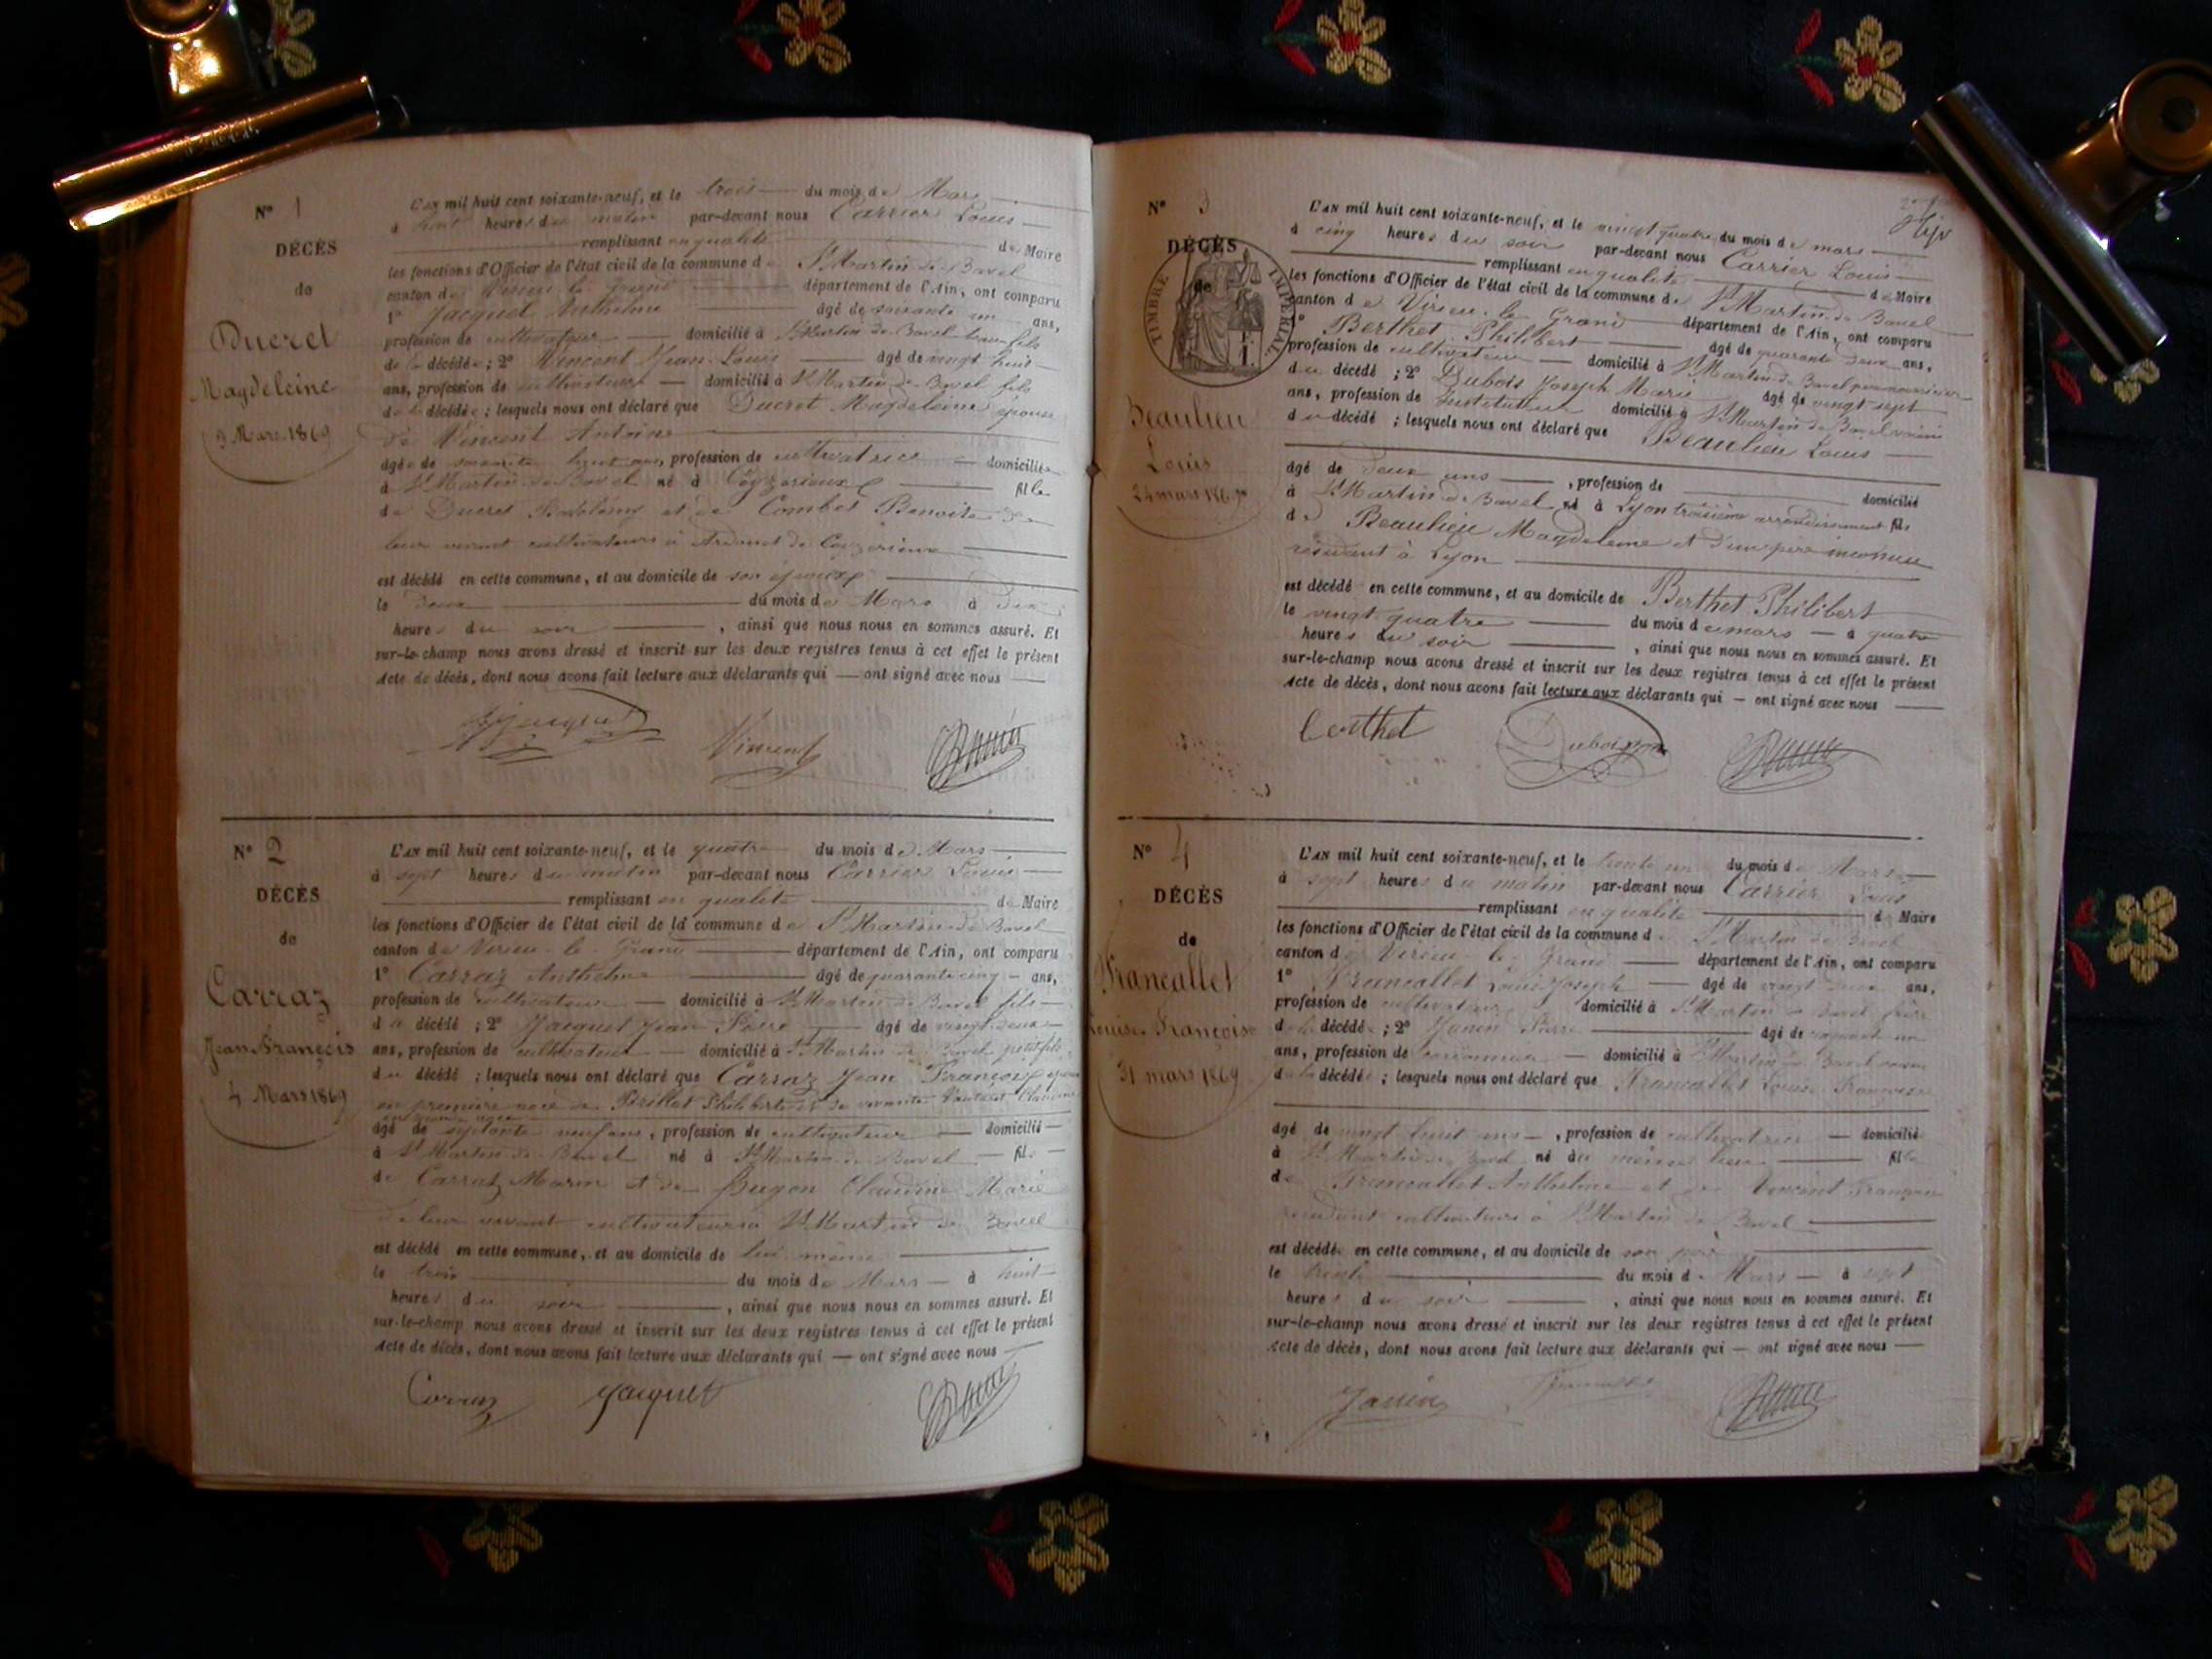 N° 1
DÉCÈS
de
Ducret
Magdeleine
3 Mars 1869
L'AN mil huit cent soixante-neuf, et le trois du mois de Mars
à huit heures du matin par-devant nous Carrier Louis
remplissant en qualité de Maire
les fonctions d'Officier de l'état civil de la commune de St Martin de Bavel
canton de Virieu le Grand département de l'Ain, ont comparu
1° Jacquet Anthelme âgé de soixante un ans,
profession de cultivateur domicilié à St Martin de Bavel beau fils
de la décédée ; 2° Vincent Jean Louis âgé de vingt huit
ans, profession de cultivateur domicilié à St Martin de Bavel fils
de la décédée ; lesquels nous ont déclaré que Ducret Magdeleine épouse
de Vincent Antoine
âgée de soixante ans, profession de cultivatrice domiciliée
à St Martin de Bavel né à Ceyzerieux fille
de Ducret et de Combet Benoite de
leur vivant cultivateurs à Ardosset de Ceyzerieux
est décédé en cette commune, et au domicile de son époux
le deux du mois de Mars à dix
heures du soir , ainsi que nous nous en sommes assuré. Et
sur-le-champ nous avons dressé et inscrit sur les deux registres tenus à cet effet le présent
Acte de décès, dont nous avons fait lecture aux déclarants qui ont signé avec nous
Jacquet Vincent
N° 2
DÉCÈS
de
Carraz
Jean François
4 Mars 1869
L'AN mil huit cent soixante-neuf, et le quatre du mois de Mars
à sept heures du matin par-devant nous Carrier Louis
remplissant en qualité de Maire
les fonctions d'Officier de l'état civil de la commune de St Martin de Bavel
canton de Virieu le Grand département de l'Ain, ont comparu
1° Carraz Anthelme âgé de quarante cinq ans,
profession de cultivateur domicilié à St Martin de Bavel fils
du décédé ; 2° Jacquet Jean Pierre âgé de vingt deux
ans, profession de cultivateur domicilié à St Martin de Bavel petit fils
du décédé ; lesquels nous ont déclaré que Carraz Jean François époux
en première noce de Philiberte et de
âgé de septante neuf ans, profession de cultivateur domicilié
à St Martin de Bavel né à St Martin de Bavel fils
de Carraz Marin et de Bugon Claudine Marie
de leur vivant cultivateurs à St Martin de Bavel
est décédé en cette commune, et au domicile de lui même
le trois du mois de Mars à huit
heures du soir , ainsi que nous nous en sommes assuré. Et
sur-le-champ nous avons dressé et inscrit sur les deux registres tenus à cet effet le présent
Acte de décès, dont nous avons fait lecture aux déclarants qui ont signé avec nous
Carraz Jacquet
N° 3
DÉCÈS
de
TIMBRE IMPÉRIAL
Beaulieu
Louis
24 mars 1869
L'AN mil huit cent soixante-neuf, et le vingt quatre du mois de mars
à cinq heures du soir par-devant nous Carrier Louis
remplissant en qualité de Maire
les fonctions d'Officier de l'état civil de la commune de St Martin de Bavel
canton de Virieu le Grand département de l'Ain, ont comparu
1° Berthet Philibert âgé de quarante deux ans,
profession de cultivateur domicilié à St Martin de Bavel père nourricier
du décédé ; 2° Dubois Joseph Marie âgé de vingt sept
ans, profession de instituteur domicilié à St Martin de Bavel voisin
du décédé ; lesquels nous ont déclaré que Beaulieu Louis
âgé de deux ans , profession de domicilié
à St Martin de Bavel né à Lyon troisième arrondissement fils
de Beaulieu Magdeleine et d'un père inconnu
résidant à Lyon
est décédé en cette commune, et au domicile de Berthet Philibert
le vingt quatre du mois de mars à quatre
heures du soir , ainsi que nous nous en sommes assuré. Et
sur-le-champ nous avons dressé et inscrit sur les deux registres tenus à cet effet le présent
Acte de décès, dont nous avons fait lecture aux déclarants qui ont signé avec nous
Berthet Dubois
N° 4
DÉCÈS
de
Francallet
Louise Françoise
31 mars 1869
L'AN mil huit cent soixante-neuf, et le trente un du mois de Mars
à sept heures du matin par-devant nous Carrier Louis
remplissant en qualité de Maire
les fonctions d'Officier de l'état civil de la commune de St Martin de Bavel
canton de Virieu le Grand département de l'Ain, ont comparu
1° Francallet Louis Joseph âgé de vingt ans,
profession de cultivateur domicilié à St Martin de Bavel frère
de la décédée ; 2° Janin Pierre âgé de soixante un
ans, profession de domicilié à St Martin de Bavel voisin
de la décédée ; lesquels nous ont déclaré que Francallet Louise Françoise
âgé de vingt huit ans , profession de cultivatrice domicilié
à St Martin de Bavel né au même lieu fille
de Francallet Anthelme et de Vincent
résidant cultivateurs à St Martin de Bavel
est décédé en cette commune, et au domicile de son père
le trente du mois de Mars à sept
heures du soir , ainsi que nous nous en sommes assuré. Et
sur-le-champ nous avons dressé et inscrit sur les deux registres tenus à cet effet le présent
Acte de décès, dont nous avons fait lecture aux déclarants qui ont signé avec nous
Janin Francallet